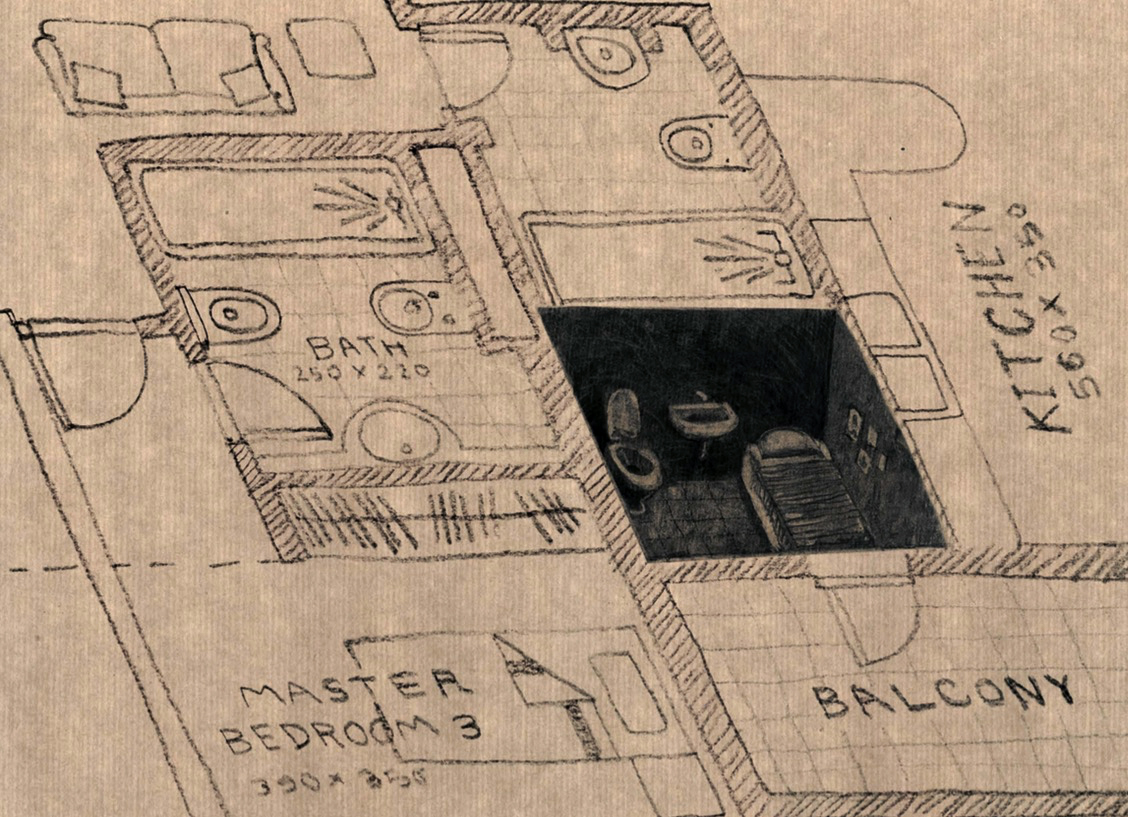 BATH
250 X 220
KITCHEN
560 X 350
MASTER
BEDROOM 3
390 x 350
BALCONY